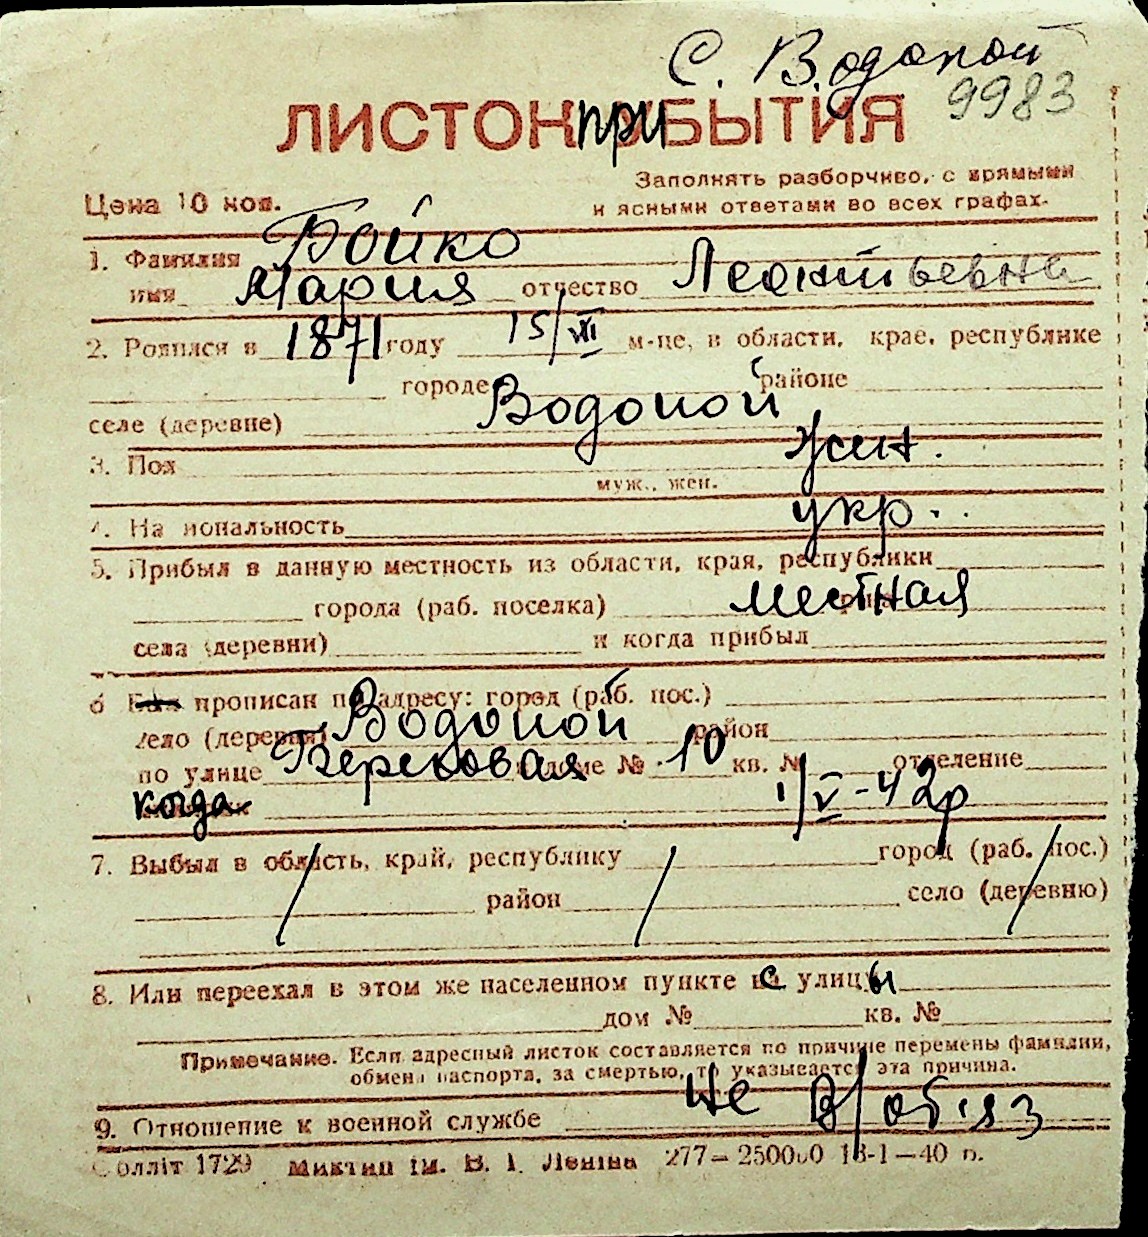 С. Водопой
9983
ЛИСТОК ПРИБЫТИЯ
Цена 10 коп.
Заполнять разборчиво, с прямыми
и ясными ответами во всех графах.
1. Фамилия Бойко
имя Мария отчество Леонтьевна
2. Родился в 1871 году 15/VII м-це, в области, крае, республике
городе районе
селе (деревне) Водопой
3. Пол жен.
муж., жен.
4. Национальность укр.
5. Прибыл в данную местность из области, края, республики
города (раб. поселка) местная
села (деревни) и когда прибыл
6 прописан по адресу: город (раб. пос.)
село (деревня) Водопой район
по улице доме № 10 кв. № отделение
когда 1/V-42р
7. Выбыл в область, край, республику город (раб. пос.)
район село (деревню)
8. Или переехал в этом же населенном пункте с улицы
дом № кв. №
Примечание. Если адресный листок составляется по причине перемены фамилии,
обмена паспорта, за смертью, то указывается эта причина.
9. Отношение к военной службе не в/обяз
оллліт 1729 Миктип ім. В. І. Леніна 277—250000 18-1—40 р.